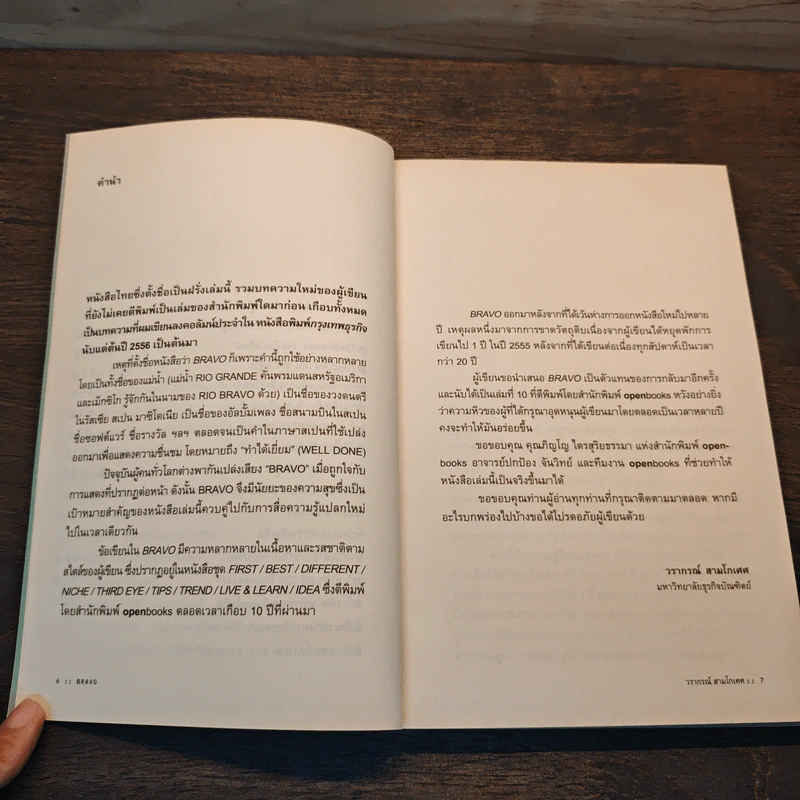 คำนำ
หนังสือไทยซึ่งตั้งชื่อเป็นฝรั่งเล่มนี้ รวมบทความใหม่ของผู้เขียน
ที่ยังไม่เคยตีพิมพ์เป็นเล่มของสำนักพิมพ์ใดมาก่อน เกือบทั้งหมด
เป็นบทความที่ผมเขียนลงคอลัมน์ประจำใน หนังสือพิมพ์กรุงเทพธุรกิจ
นับแต่ต้นปี 2556 เป็นต้นมา
เหตุที่ตั้งชื่อหนังสือว่า BRAVO ก็เพราะคำนี้ถูกใช้อย่างหลากหลาย
โดยเป็นทั้งชื่อของแม่น้ำ (แม่น้ำ RIO GRANDE คั่นพรมแดนสหรัฐอเมริกา
และเม็กซิโก รู้จักกันในนามของ RIO BRAVO ด้วย) เป็นชื่อของวงดนตรี
ในรัสเซีย สเปน มาซิโดเนีย เป็นชื่อของอัลบั้มเพลง ชื่อสนามบินในสเปน
ชื่อซอฟต์แวร์ ชื่อรางวัล ฯลฯ ตลอดจนเป็นคำในภาษาสเปนที่ใช้เปล่ง
ออกมาเพื่อแสดงความชื่นชม โดยหมายถึง “ทำได้เยี่ยม” (WELL DONE)
ปัจจุบันผู้คนทั่วโลกต่างพากันเปล่งเสียง “BRAVO” เมื่อถูกใจกับ
การแสดงที่ปรากฏต่อหน้า ดังนั้น BRAVO จึงมีนัยยะของความสุขซึ่งเป็น
เป้าหมายสำคัญของหนังสือเล่มนี้ควบคู่ไปกับการสื่อความรู้แปลกใหม่
ไปในเวลาเดียวกัน
ข้อเขียนใน BRAVO มีความหลากหลายในเนื้อหาและรสชาติตาม
สไตล์ของผู้เขียน ซึ่งปรากฏอยู่ในหนังสือชุด FIRST / BEST / DIFFERENT /
NICHE / THIRD EYE / TIPS / TREND / LIVE & LEARN / IDEA ซึ่งตีพิมพ์
โดยสำนักพิมพ์ openbooks ตลอดเวลาเกือบ 10 ปีที่ผ่านมา
6 :: BRAVO
BRAVO ออกมาหลังจากที่ได้เว้นห่างการออกหนังสือใหม่ไปหลาย
ปี เหตุผลหนึ่งมาจากการขาดวัตถุดิบเนื่องจากผู้เขียนได้หยุดพักการ
เขียนไป 1 ปี ในปี 2555 หลังจากที่ได้เขียนต่อเนื่องทุกสัปดาห์เป็นเวลา
กว่า 20 ปี
ผู้เขียนขอนำเสนอ BRAVO เป็นตัวแทนของการกลับมาอีกครั้ง
และนับได้เป็นเล่มที่ 10 ที่ตีพิมพ์โดยสำนักพิมพ์ openbooks หวังอย่างยิ่ง
ว่าความหิวของผู้ที่ได้กรุณาอุดหนุนผู้เขียนมาโดยตลอดเป็นเวลาหลายปี
คงจะทำให้มันอร่อยขึ้น
ขอขอบคุณ คุณภิญโญ ไตรสุริยธรรมา แห่งสำนักพิมพ์ open-
books อาจารย์ปกป้อง จันวิทย์ และทีมงาน openbooks ที่ช่วยทำให้
หนังสือเล่มนี้เป็นจริงขึ้นมาได้
ขอขอบคุณท่านผู้อ่านทุกท่านที่กรุณาติดตามมาตลอด หากมี
อะไรบกพร่องไปบ้างขอได้โปรดอภัยผู้เขียนด้วย
วรากรณ์ สามโกเศศ
มหาวิทยาลัยธุรกิจบัณฑิตย์
วรากรณ์ สามโกเศศ :: 7